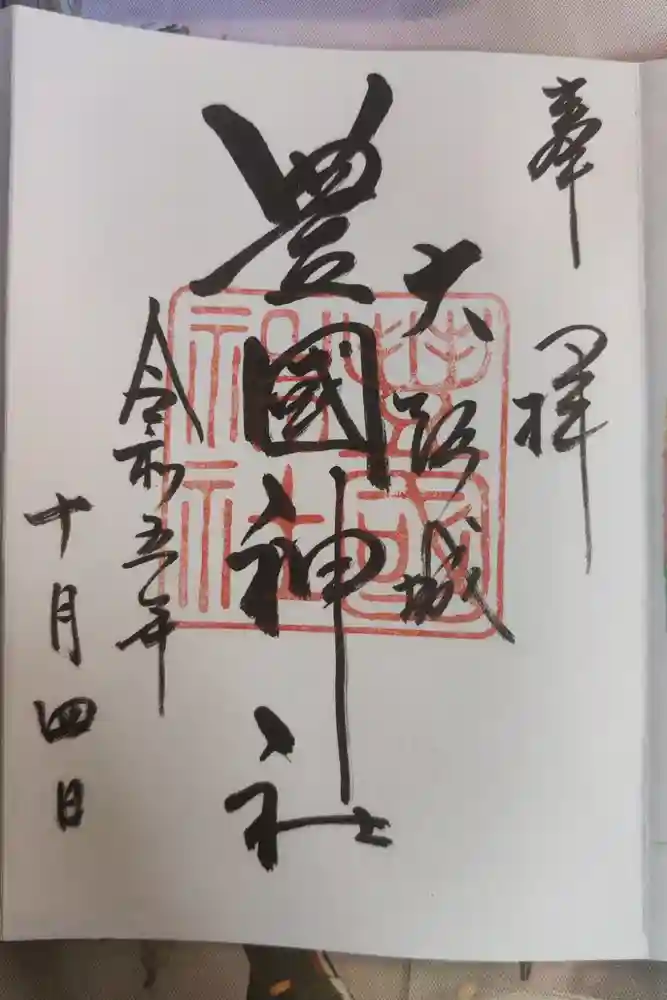 奉拝
大阪城
豊國神社
令和五年
十月四日
豊國
神社